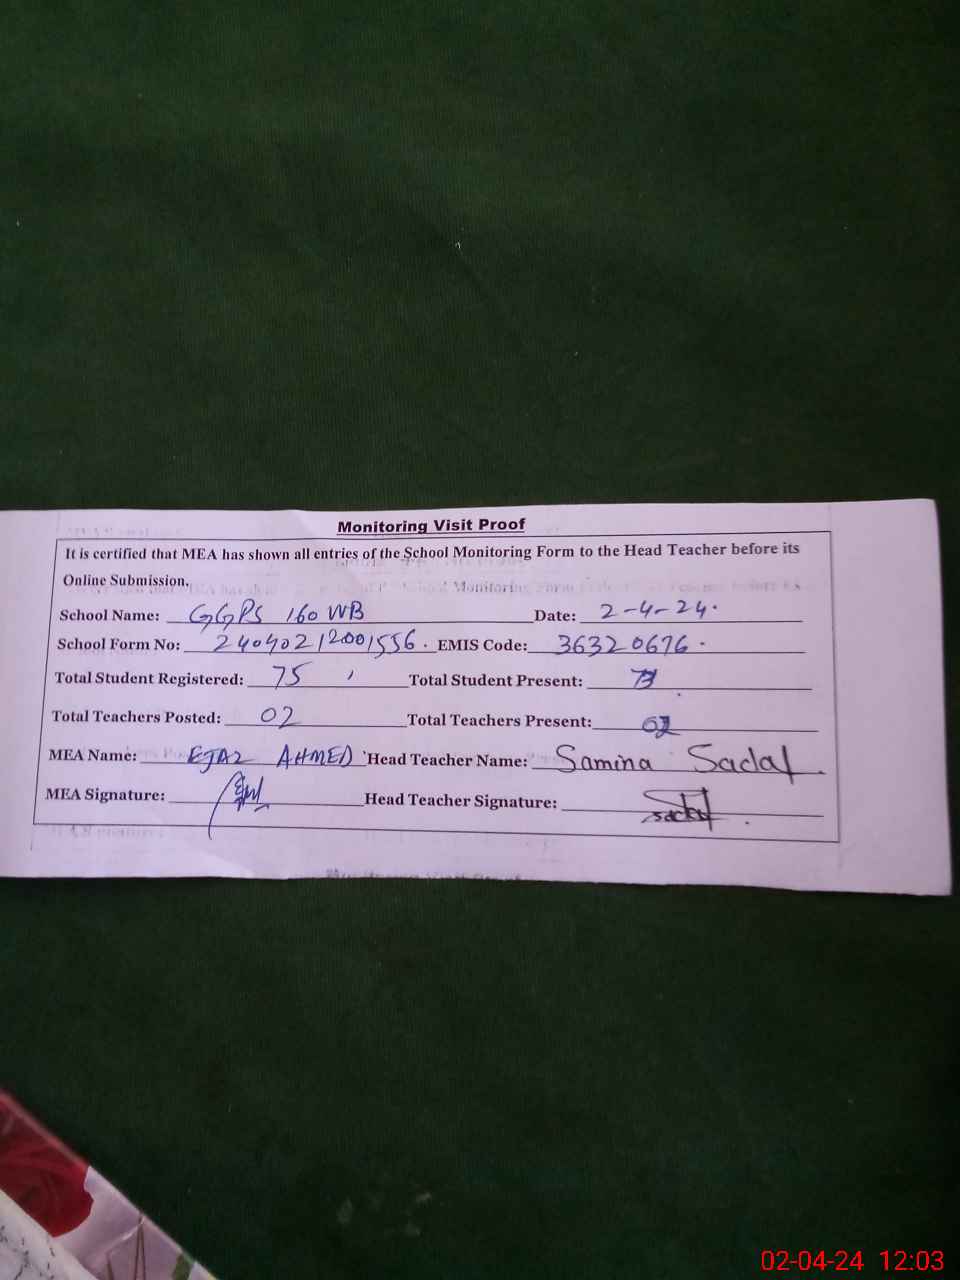 Monitoring Visit Proof
It is certified that MEA has shown all entries of the School Monitoring Form to the Head Teacher before its
Online Submission.
School Name: GGPS 160 WB Date: 2-4-24.
School Form No: 24040212001556. EMIS Code: 36320676.
Total Student Registered: 75 Total Student Present:
Total Teachers Posted: 02 Total Teachers Present:
MEA Name: EJAZ AHMED Head Teacher Name: Samina Sadaf.
MEA Signature: Head Teacher Signature: Sadaf
02-04-24 12:03